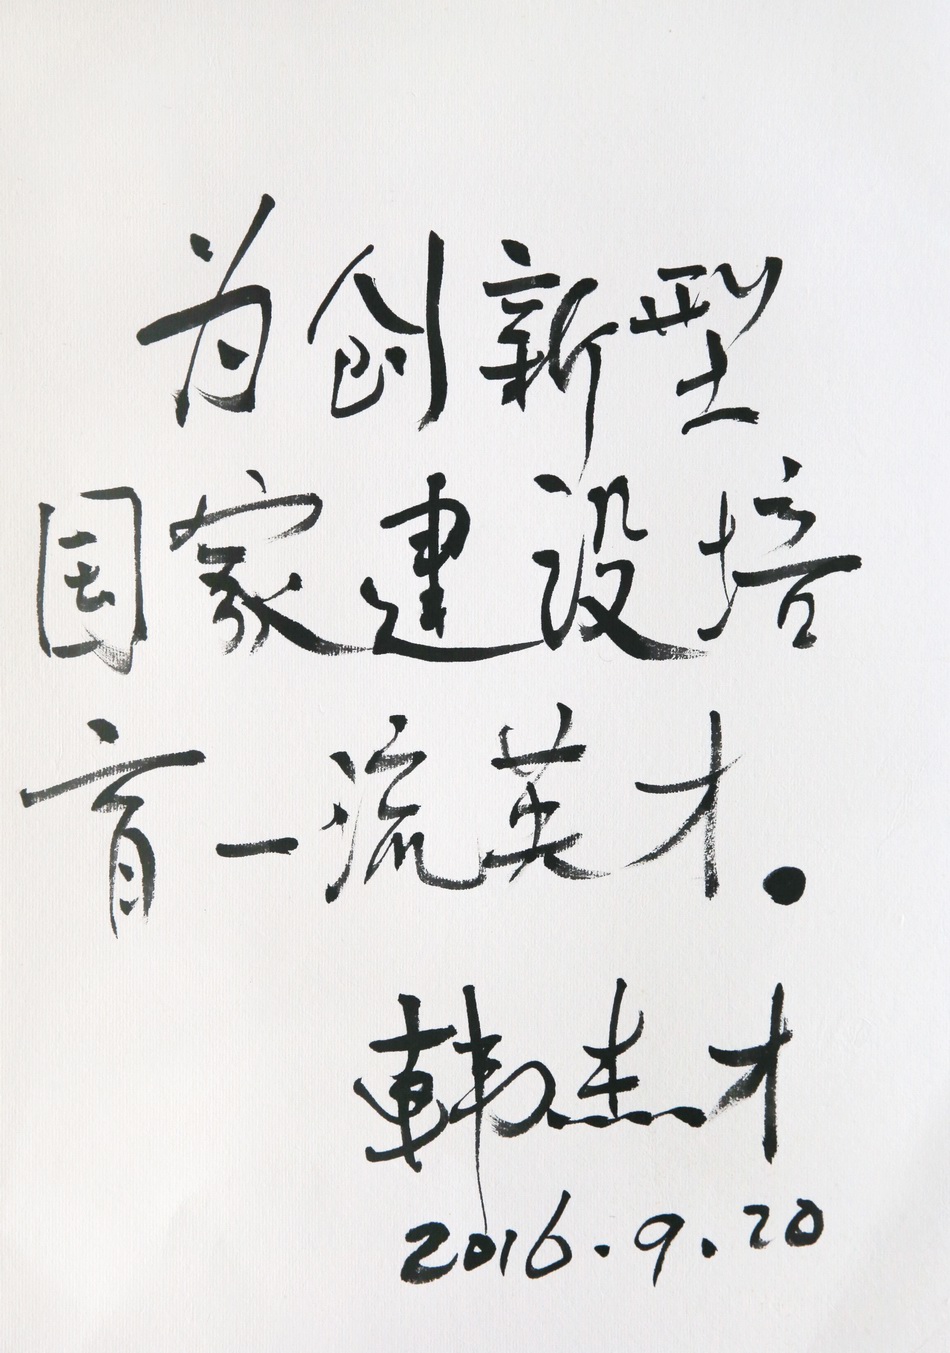 为创新型
国家建设培
育一流英才.
韩杰才
2016.9.20